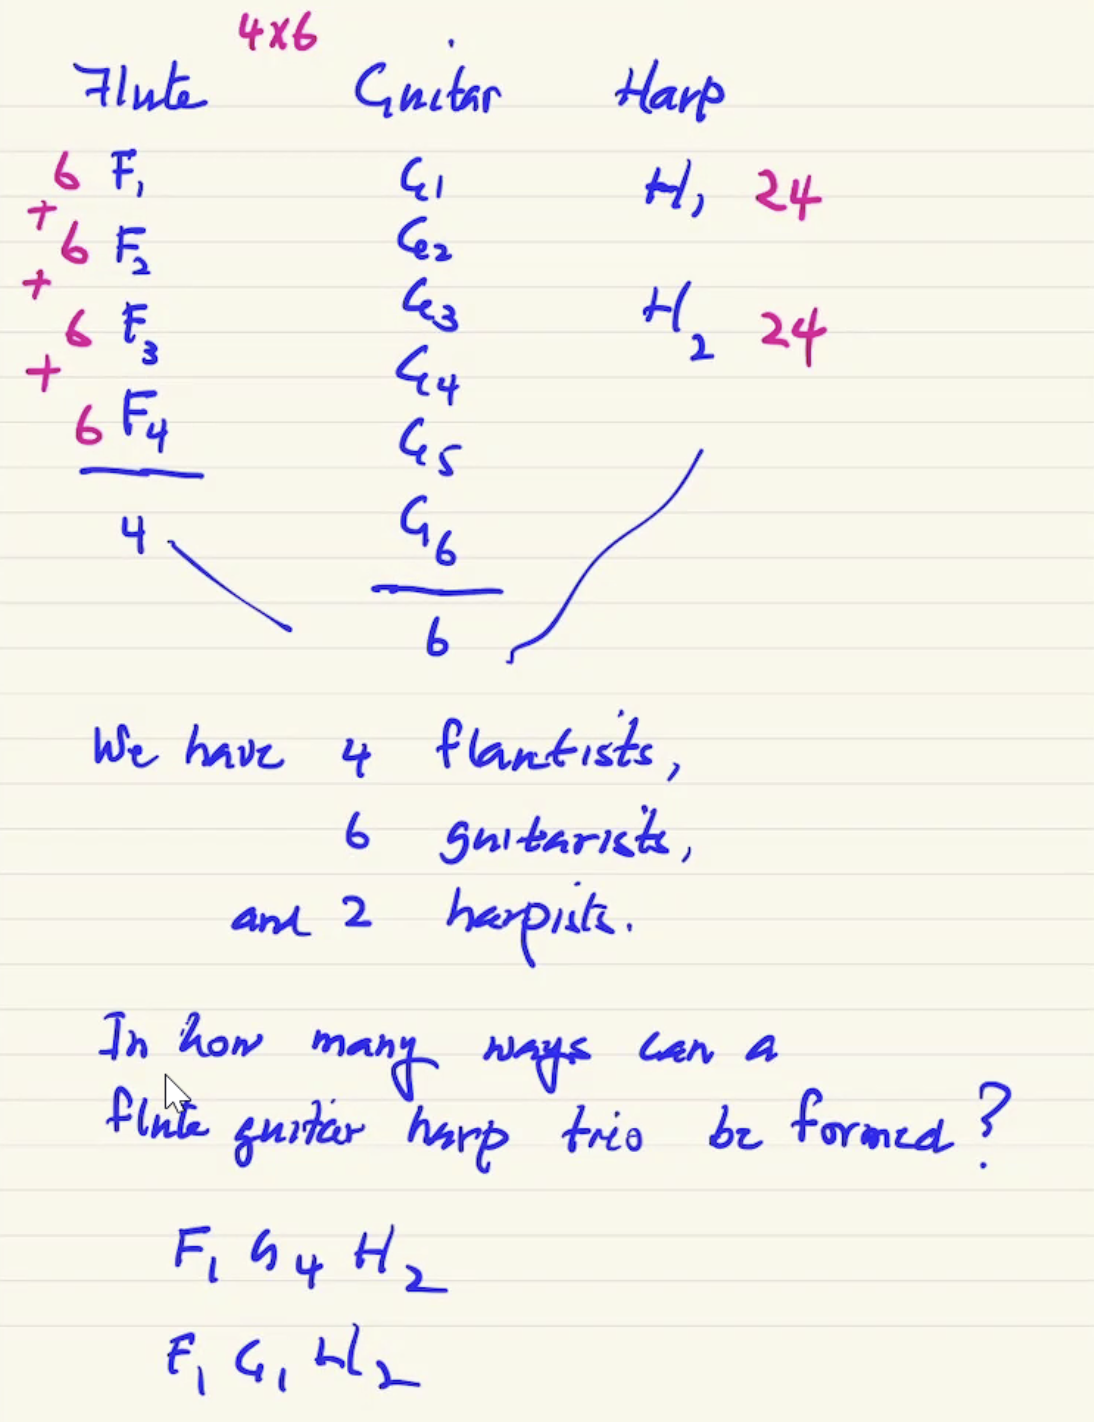 4x6
Flute Guitar Harp
6 F1 G1 H1 24
+
6 F2 G2
+
6 F3 G3 H2 24
+
6 F4 G4
G5
4 G6
6
We have 4 flautists,
6 guitarists,
and 2 harpists.
In how many ways can a
flute guitar harp trio be formed?
F1 G4 H2
F1 G1 H2